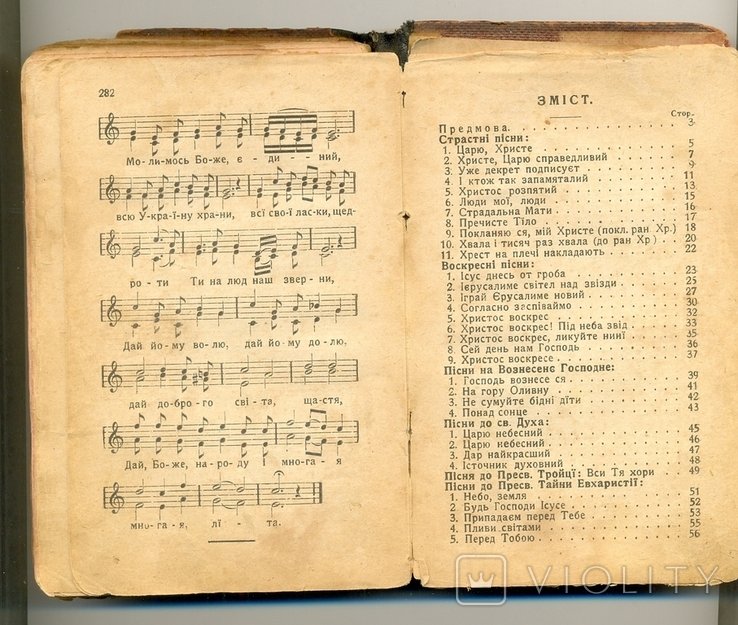 282
Мо-ли-мось Бо-же, є-ди - - ний,
всю У-кра-ї-ну хра-ни, всї сво-ї лас-ки, щед-
ро-ти Ти на люд наш звер-ни,
Дай йо-му во-лю, дай йо-му до-лю,
дай доб-ро-го сві-та, ща-стя,
Дай, Бо-же, на-ро-ду і мно-га-я
мно-га-я, лї-та.
ЗМІСТ.
Стор.
Предмова. 3
Страстні пісни:
1. Царю, Христе 5
2. Христе, Царю справедливий 7
3. Уже декрет подписуєт 9
4. І ктож так запамяталий 11
5. Христос розпятий 13
6. Люди мої, люди 15
7. Страдальна Мати 16
8. Пречисте Тіло 17
9. Покланяю ся, мій Христе (покл. ран Хр.) 18
10. Хвала і тисяч раз хвала (до ран Хр) 20
11. Хрест на плечі накладають 22
Воскресні пісни:
1. Ісус днесь от гроба 23
2. Ієрусалиме світел над звізди 25
3. Іграй Єрусалиме новий 27
4. Согласно заспіваймо 30
5. Христос воскрес 32
6. Христос воскрес! Під неба звід 33
7. Христос воскрес, ликуйте нинї 35
8. Сей день нам Господь 36
9. Христос воскресе 37
Пісни на Вознесенє Господне:
1. Господь вознесе ся 39
2. На гору Оливну 41
3. Не сумуйте бідні діти 42
4. Понад сонце 43
Пісни до св. Духа:
1. Царю небесний 45
2. Царю небесний 46
3. Дар найкрасший 47
4. Істочник духовний 48
Пісня до Пресв. Тройці: Вси Тя хори 49
Пісни до Пресв. Тайни Евхаристії:
1. Небо, земля 51
2. Будь Господи Ісусе 52
3. Припадаєм перед Тебе 53
4. Пливи світами 55
5. Перед Тобою 56
VIOLITY